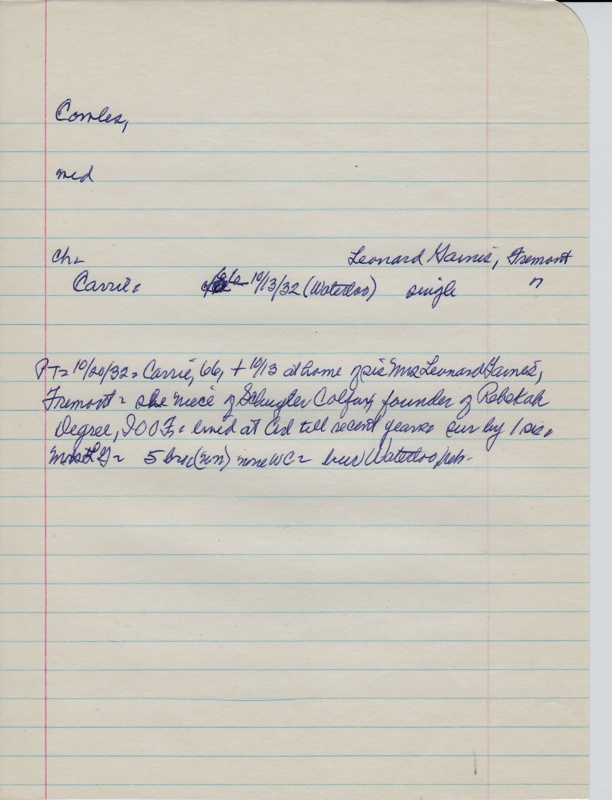 Combes,
med
ch =
Leonard Gaines, Fremont
Carrie = 10/13/32 (Waterloo) single "
PT = 10/20/32 = Carrie, 66, + 10/13 at home of sis Mrs Leonard Gaines,
Fremont = she niece of Schuyler Colfax, founder of Rebekah
Degree, IOOF = lived at Ctd till recent years = sur by 1 sis,
Mrs L G = 5 bros (un) none WC = bur Waterloo